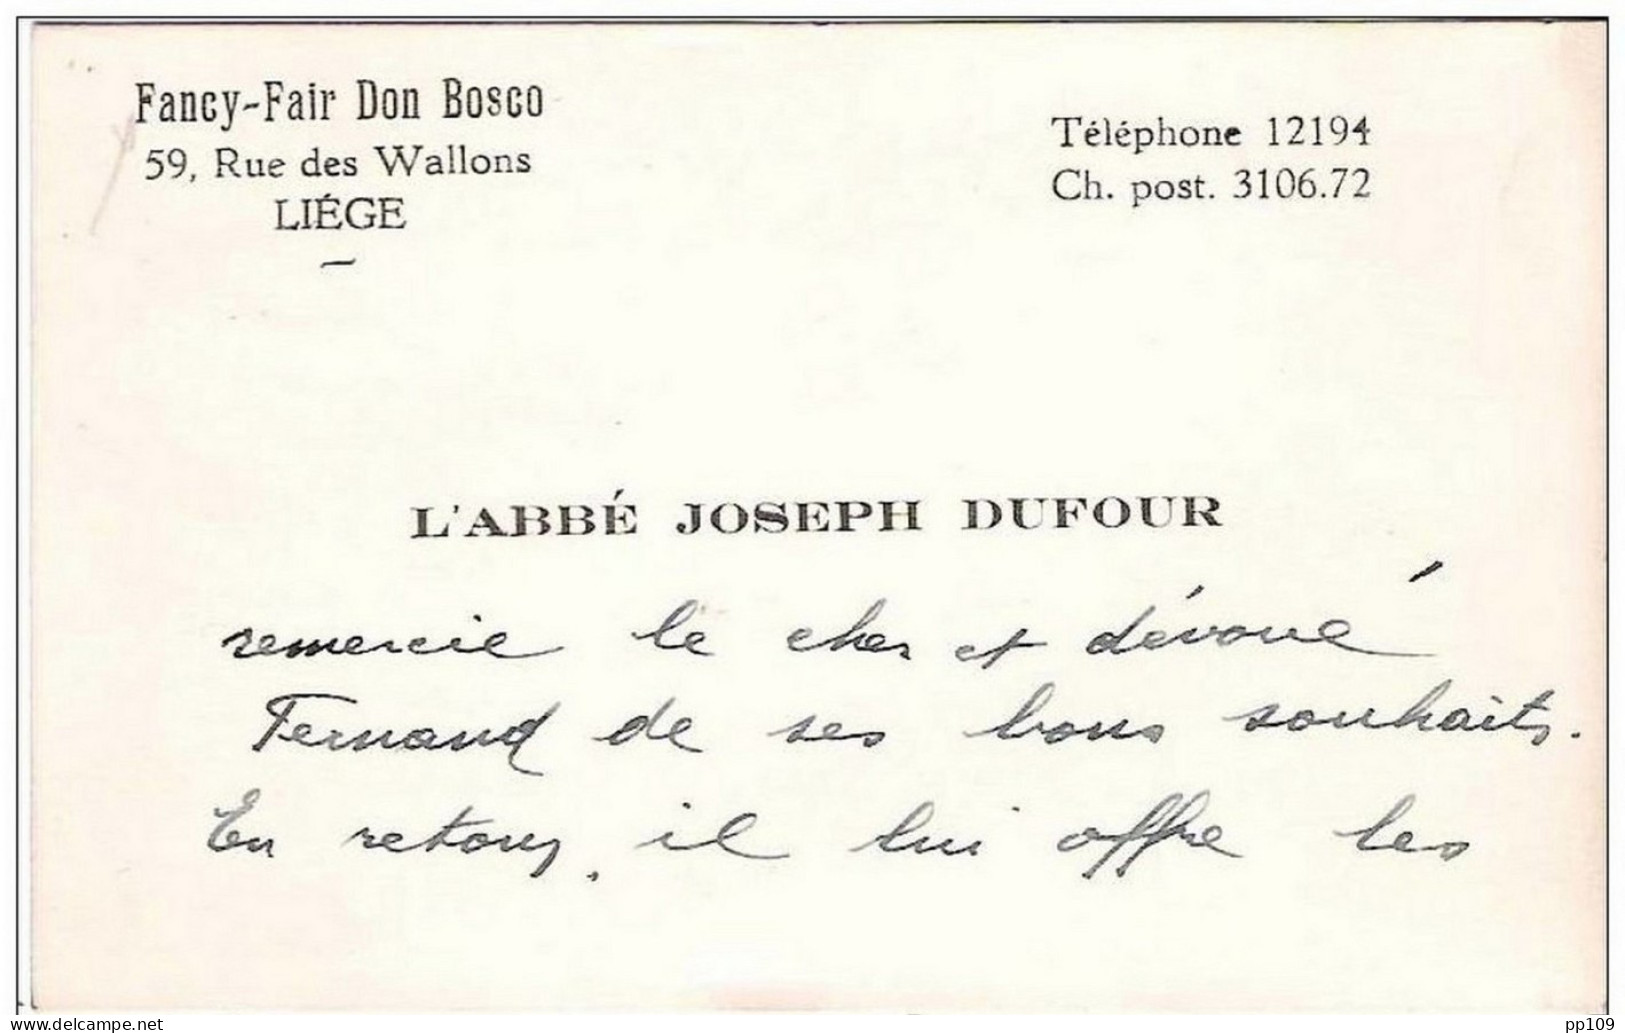 Fancy-Fair Don Bosco
59, Rue des Wallons
LIÉGE
Téléphone 12194
Ch. post. 3106.72
L'ABBÉ JOSEPH DUFOUR
remercie le cher et dévoué
Fernand de ses bons souhaits.
En retour, il lui offre les
www.delcampe.net
pp109